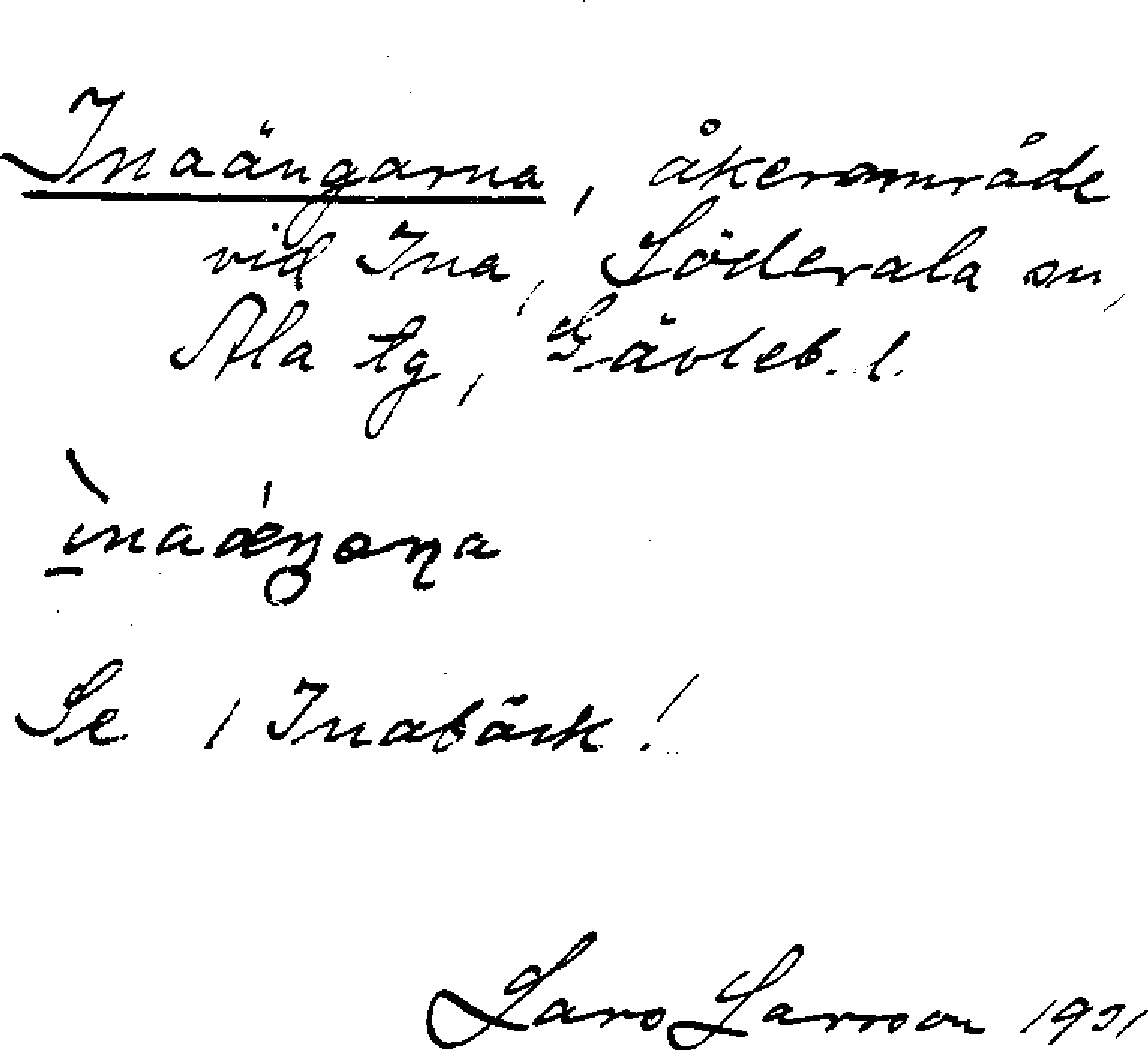 Inaängarna, åkerområde
vid Ina, Söderala sn,
Ala tg, Gävleb. l.
Se 1 Inabäck!
Lars Larsson